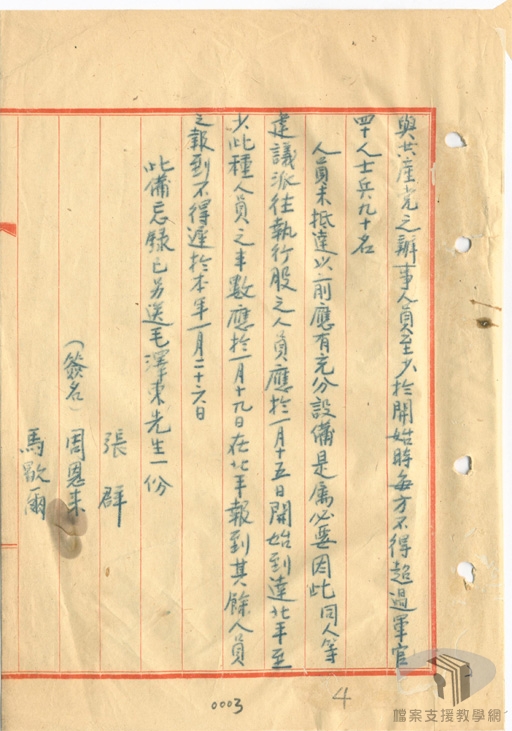 與共產党之辦事人員至少於開始時每方不得超過軍官
四十人士兵九十名
人員未抵達以前應有充分設備是屬必要因此同人等
建議派往執行股之人員應於一月十五日開始到達北平至
少此種人員之半數應於一月十九日在北平報到其餘人員
之報到不得遲於本年一月二十六日
此備忘錄已另送毛澤東先生一份
張群
(簽名)周恩来
馬歇爾
0003
4
檔案支援教學網